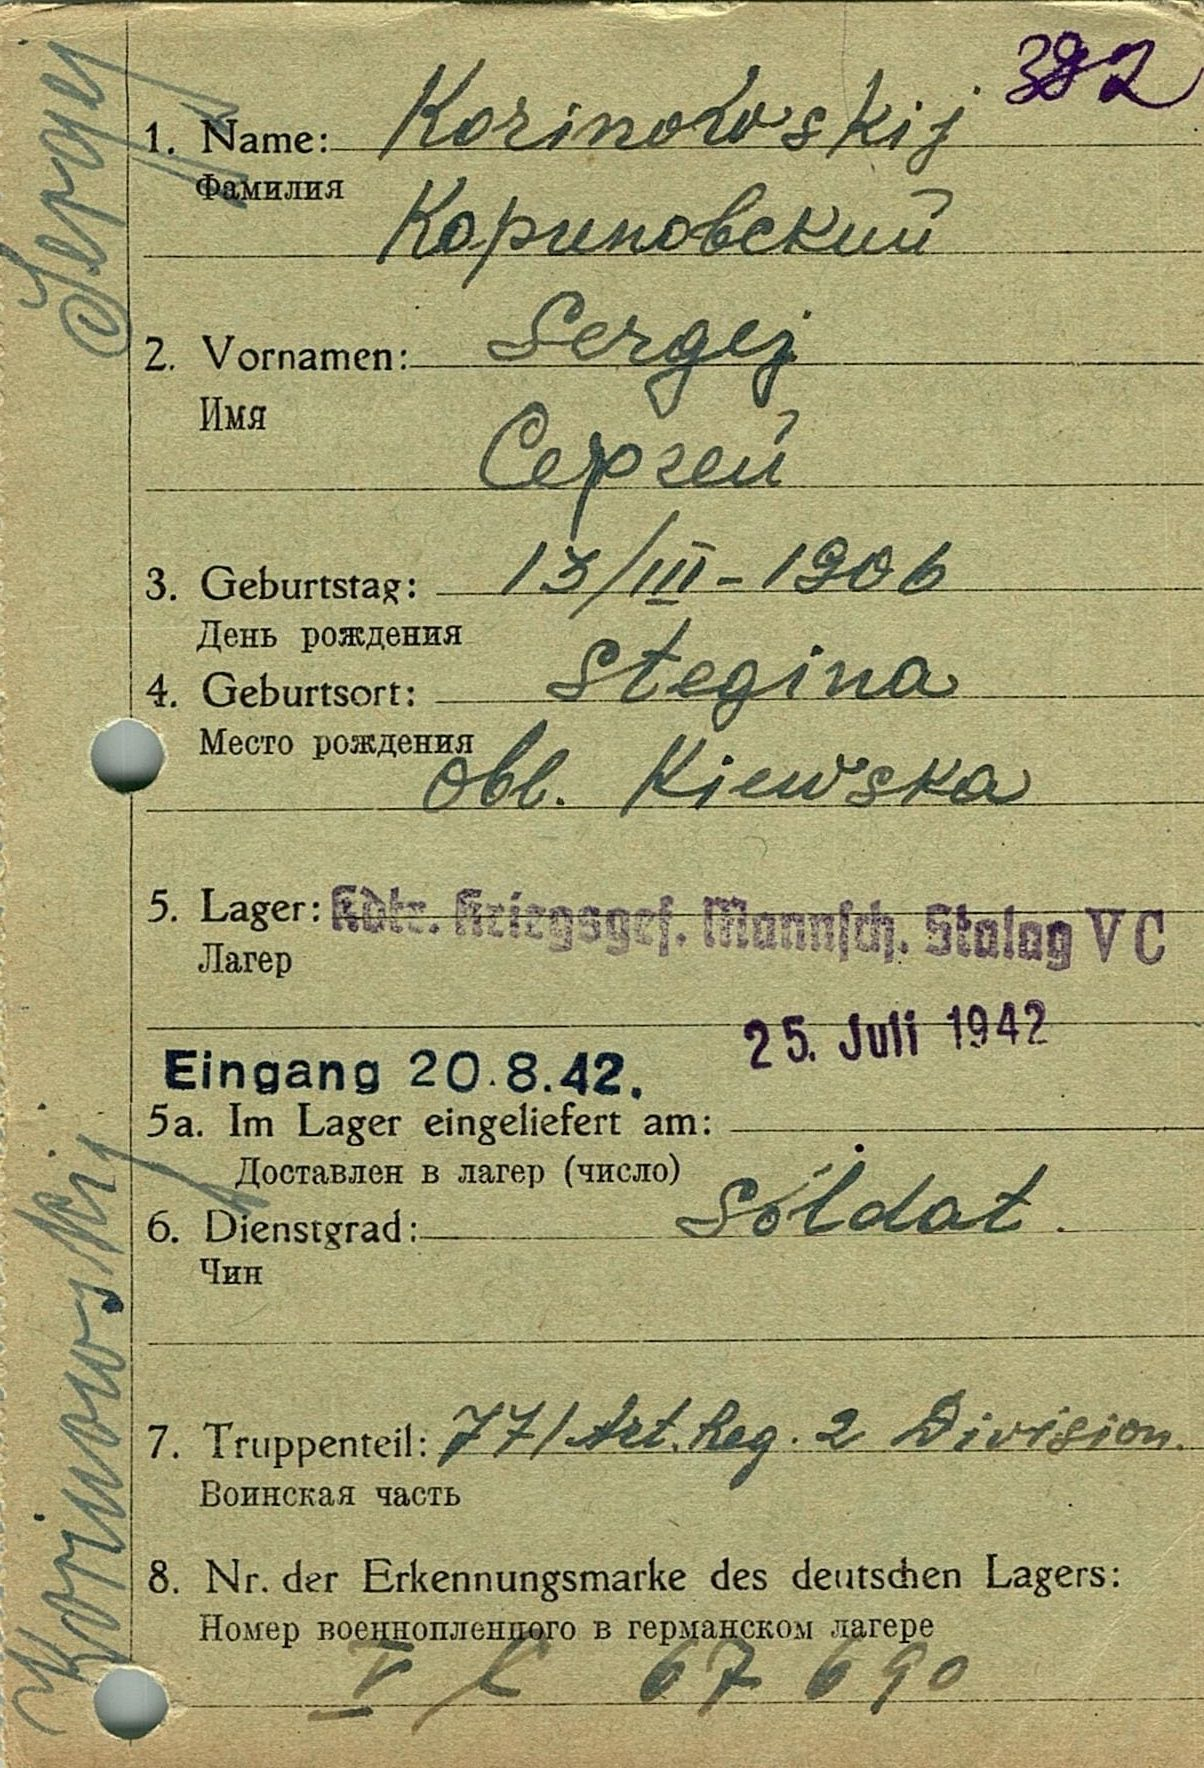 382
1. Name: Korinowskij
Фамилия
Кориновский
2. Vornamen: Sergej
Имя
Сергей
3. Geburtstag: 13/III-1906
День рождения
4. Geburtsort: Stegina
Место рождения
obl. Kiewska
5. Lager: Kdtr. Kriegsgef. Mannsch. Stalag V C
Лагер
25. Juli 1942
Eingang 20.8.42.
5a. Im Lager eingeliefert am:
Доставлен в лагер (число)
6. Dienstgrad: Soldat.
Чин
7. Truppenteil: 77/Art. Reg. 2 Division.
Воинская часть
8. Nr. der Erkennungsmarke des deutschen Lagers:
Номер военнопленного в германском лагере
V C 67 690
Korinowskij Sergej